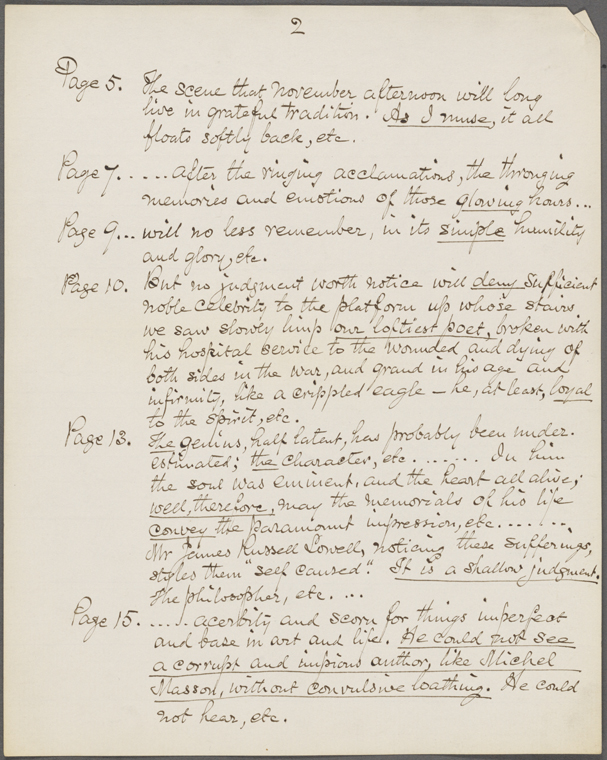 2
Page 5. The scene that November afternoon will long
live in grateful tradition. As I muse, it all
floats softly back, etc.
Page 7. .... after the ringing acclamations, the thronging
memories and emotions of those glowing hours...
Page 9... will no less remember, in its simple humility
and glory, etc.
Page 10. But no judgment worth notice will deny sufficient
noble celebrity to the platform up whose stairs
we saw slowly limp our loftiest poet, broken with
his hospital service to the wounded and dying of
both sides in the war, and grand in his age and
infirmity, like a crippled eagle — he, at least, loyal
to the spirit, etc.
Page 13. The genius, half latent, has probably been under-
estimated; the character, etc........ In him
the soul was eminent, and the heart all alive;
well, therefore, may the memorials of his life
convey the paramount impression, etc.......
Mr James Russell Lowell, noticing these sufferings,
styles them "self caused". It is a shallow judgment.
The philosopher, etc. ...
Page 15. ..... acerbity and scorn for things imperfect
and base in art and life. He could not see
a corrupt and impious author, like Michel
Masson, without convulsive loathing. He could
not hear, etc.